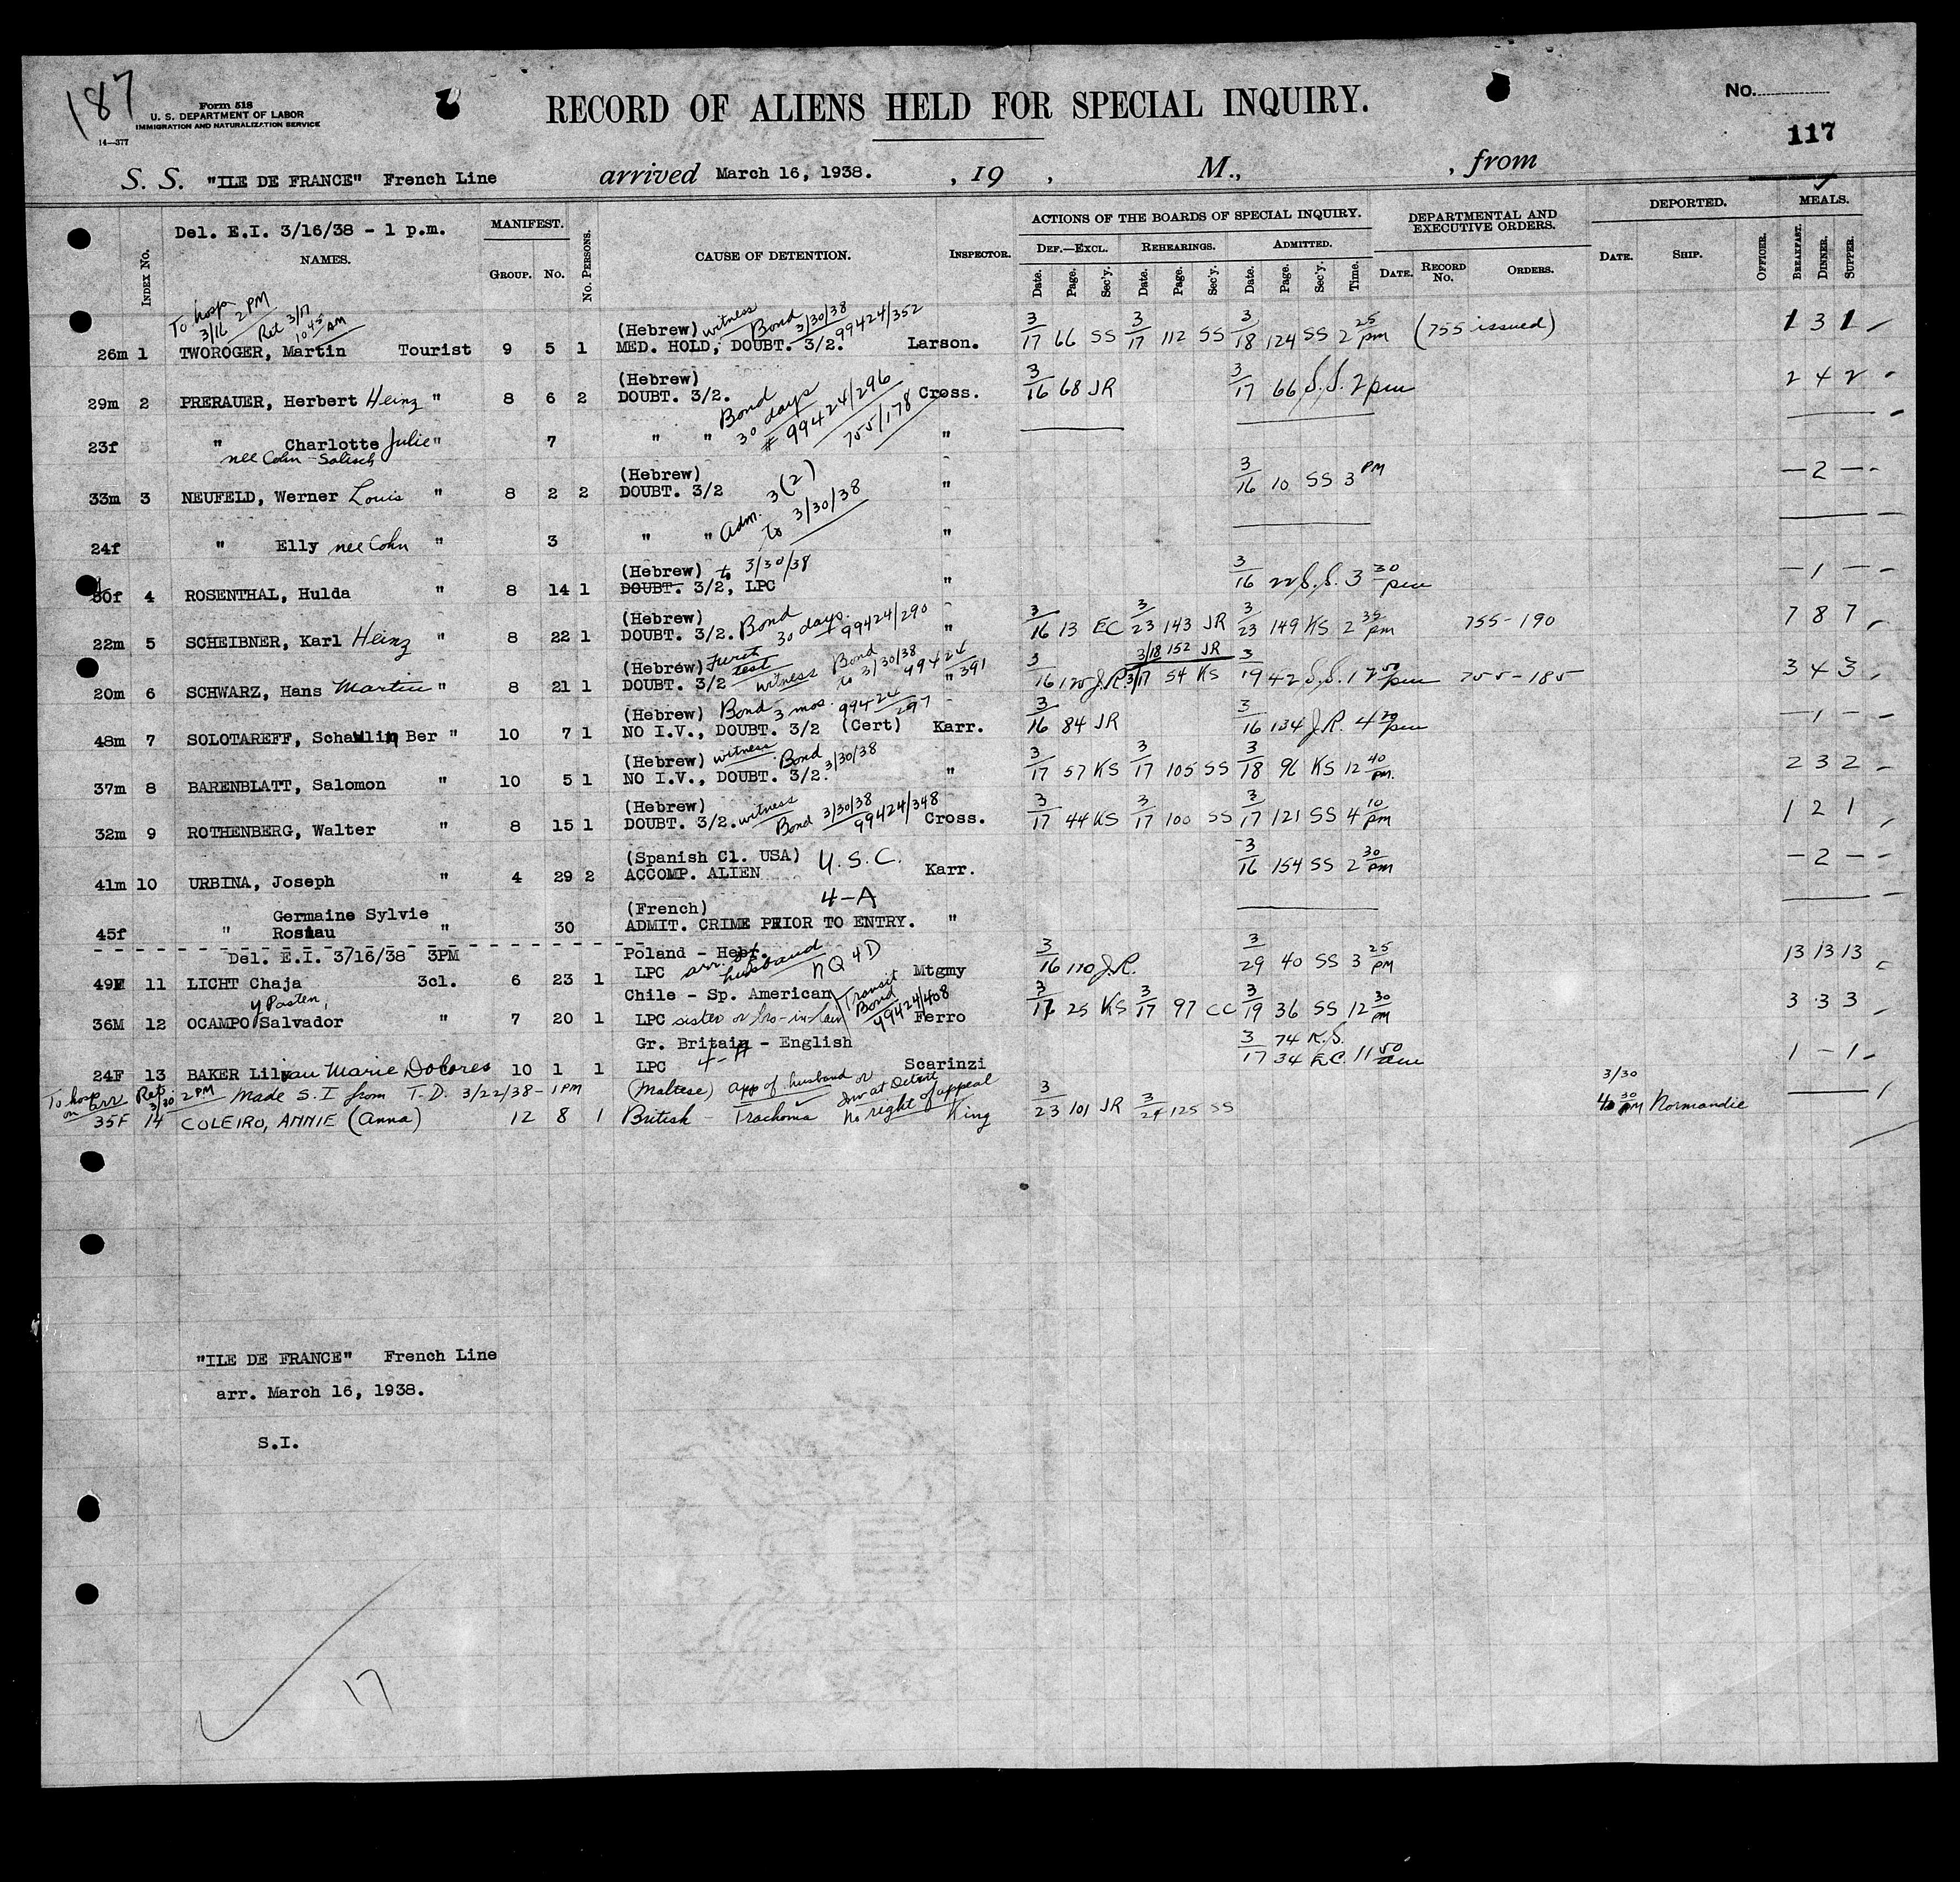 187
Form 518
U. S. DEPARTMENT OF LABOR
IMMIGRATION AND NATURALIZATION SERVICE
14—377
RECORD OF ALIENS HELD FOR SPECIAL INQUIRY.
No.
117
S. S. "ILE DE FRANCE" French Line arrived March 16, 1938. , 19 , M., , from
Del. E.I. 3/16/38 - 1 p.m.
INDEX No. NAMES. MANIFEST. GROUP. No. No. PERSONS. CAUSE OF DETENTION. INSPECTOR.
ACTIONS OF THE BOARDS OF SPECIAL INQUIRY.
DEF.—EXCL. REHEARINGS. ADMITTED.
Date. Page. Sec'y. Date. Page. Sec'y. Date. Page. Sec'y. Time.
DEPARTMENTAL AND EXECUTIVE ORDERS.
DATE. RECORD No. ORDERS.
DEPORTED.
DATE. SHIP. OFFICER.
MEALS.
BREAKFAST. DINNER. SUPPER.
To hosp 3/16 2 PM Ret 3/17 10 45 AM
(Hebrew) witness Bond 3/30/38 99424/352
26m 1 TWOROGER, Martin Tourist 9 5 1 MED. HOLD, DOUBT. 3/2. Larson. 3/17 66 SS 3/17 112 SS 3/18 124 SS 2 25 pm (755 issued) 1 3 1
(Hebrew)
29m 2 PRERAUER, Herbert Heinz " 8 6 2 DOUBT. 3/2. Bond 30 days # 99424/296 755/178 Cross. 3/16 68 JR 3/17 66 S.S. 2 pm 2 4 2
23f " Charlotte Julie " 7 " " "
nee Cohn-Salisch
(Hebrew)
33m 3 NEUFELD, Werner Louis " 8 2 2 DOUBT. 3/2 " 3/16 10 SS 3 PM — 2 —
24f " Elly nee Cohn " 3 " " Adm. 3(2) to 3/30/38 "
(Hebrew) to 3/30/38
30f 4 ROSENTHAL, Hulda " 8 14 1 DOUBT. 3/2, LPC " 3/16 22 S.S. 3 30 pm — 1 —
(Hebrew)
22m 5 SCHEIBNER, Karl Heinz " 8 22 1 DOUBT. 3/2. Bond 30 days. 99424/290 " 3/16 13 EC 3/23 143 JR 3/23 149 KS 2 35 pm 755-190 7 8 7
(Hebrew) Furth test witness Bond to 3/30/38 99424/391
3/18 152 JR
20m 6 SCHWARZ, Hans Martin " 8 21 1 DOUBT. 3/2 " 3/16 125 J.R. 3/17 54 KS 3/19 42 S.S. 12 50 pm 755-185 3 4 3
(Hebrew) Bond 3 mos. 99424/297
48m 7 SOLOTAREFF, Schawlin Ber " 10 7 1 NO I.V., DOUBT. 3/2 (Cert) Karr. 3/16 84 JR 3/16 134 J.R. 4 20 pm — 1 —
(Hebrew) witness Bond 3/30/38
37m 8 BARENBLATT, Salomon " 10 5 1 NO I.V., DOUBT. 3/2. " 3/17 57 KS 3/17 105 SS 3/18 96 KS 12 40 PM. 2 3 2
(Hebrew)
32m 9 ROTHENBERG, Walter " 8 15 1 DOUBT. 3/2. witness Bond 3/30/38 99424/348 Cross. 3/17 44 KS 3/17 100 SS 3/17 121 SS 4 10 pm 1 2 1
(Spanish Cl. USA) U.S.C.
41m 10 URBINA, Joseph " 4 29 2 ACCOMP. ALIEN Karr. 3/16 154 SS 2 30 pm — 2 —
Germaine Sylvie (French) 4-A
45f " Rosiau " 30 ADMIT. CRIME PRIOR TO ENTRY. "
Del. E.I. 3/16/38 3PM Poland - Hebr.
49F 11 LICHT Chaja 3cl. 6 23 1 LPC arr. of husband NQ 4D Mtgmy 3/16 110 J.R. 3/29 40 SS 3 25 PM 13 13 13
y Pasten, Chile - Sp. American
36M 12 OCAMPO Salvador " 7 20 1 LPC sister or bro-in-law Transit Bond 99424/408 Ferro 3/17 25 KS 3/17 97 CC 3/19 36 SS 12 30 PM 3 3 3
Gr. Britain - English 3/17 74 K.S.
24F 13 BAKER Lilyan Marie Dolores 10 1 1 LPC 4-A Scarinzi 34 E.C. 11 50 am 1 — 1
To hosp on arr Ret. 3/30 2 PM Made S.I from T.D. 3/22/38 - 1 PM (Maltese) app of husband or Inv at Detroit
35F 14 COLEIRO, ANNIE (Anna) 12 8 1 British - Trachoma No right of appeal King 3/23 101 JR 3/24 125 SS 3/30 4 30 PM Normandie
"ILE DE FRANCE" French Line
arr. March 16, 1938.
S.I.
17